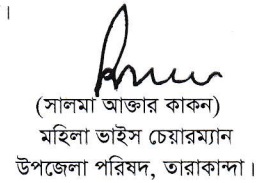 ।
(সালমা আক্তার কাকন)
মহিলা ভাইস চেয়ারম্যান
উপজেলা পরিষদ, তারাকান্দা।